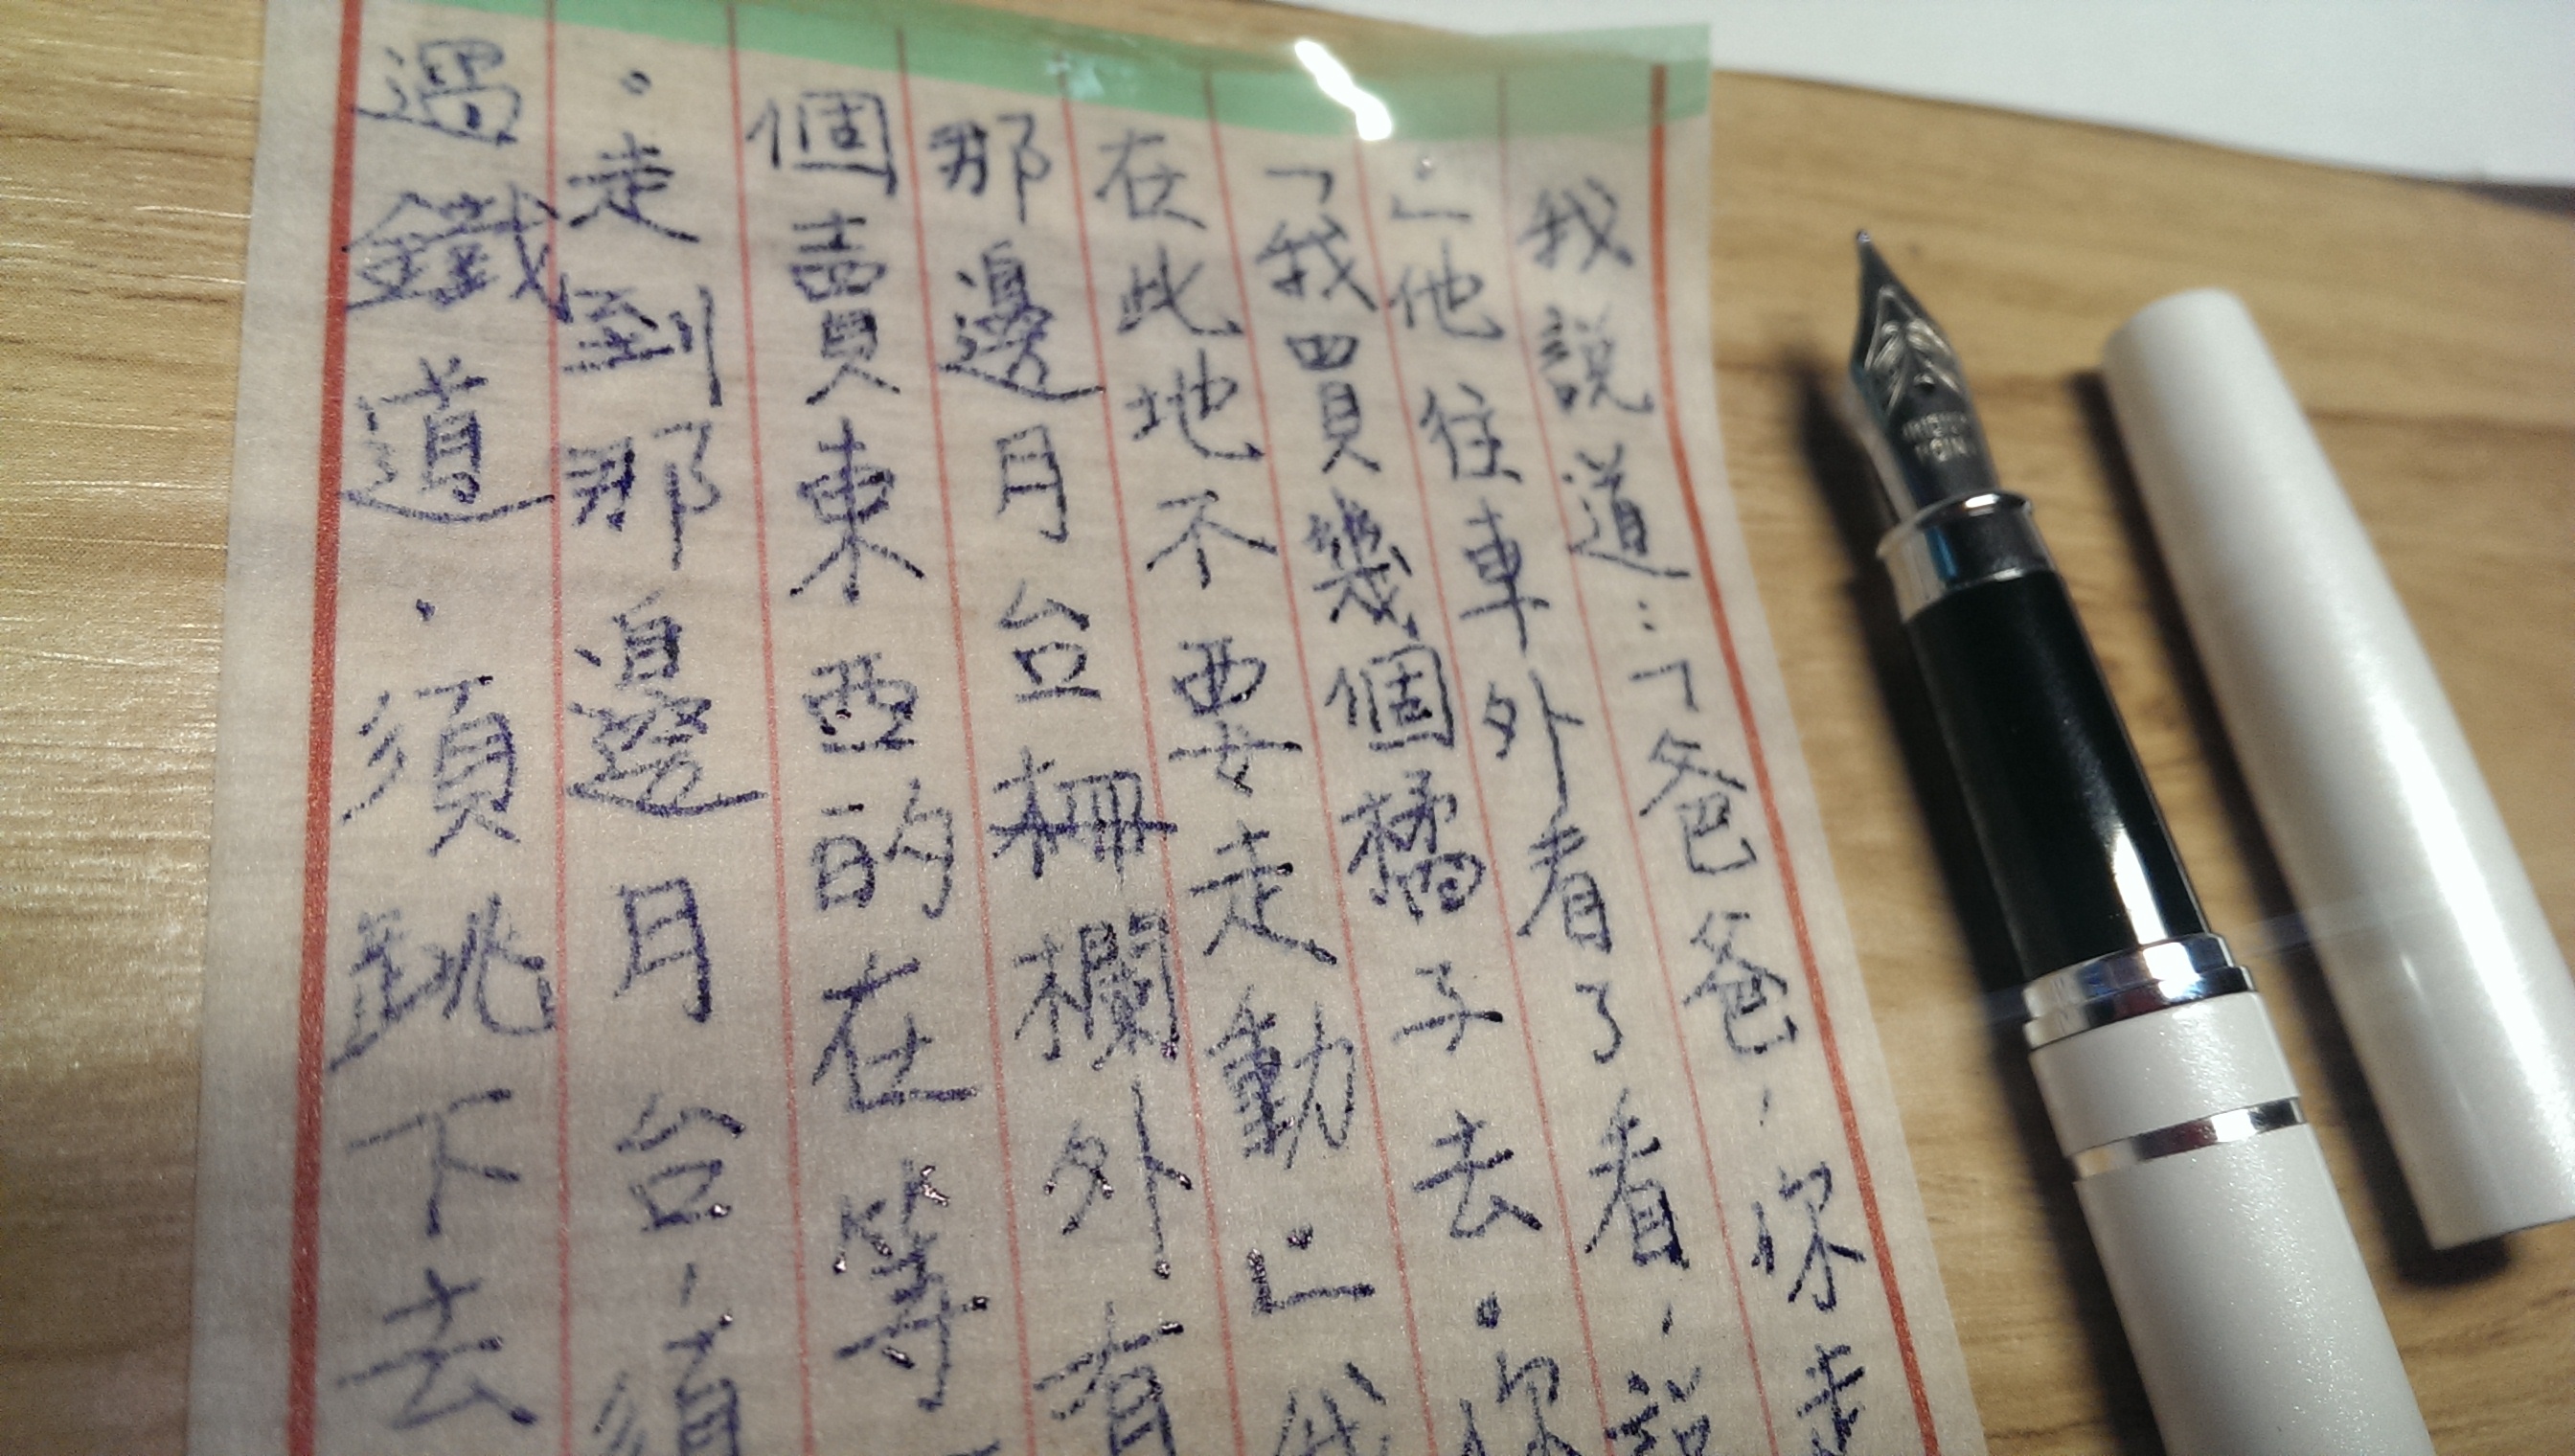 我說道：「爸爸，你走
」他往車外看了看，說
「我買幾個橘子去。你
在此地不要走動」我
那邊月台柵欄外有
個賣東西的在等
。走到那邊月台，須
過鐵道，須跳下去